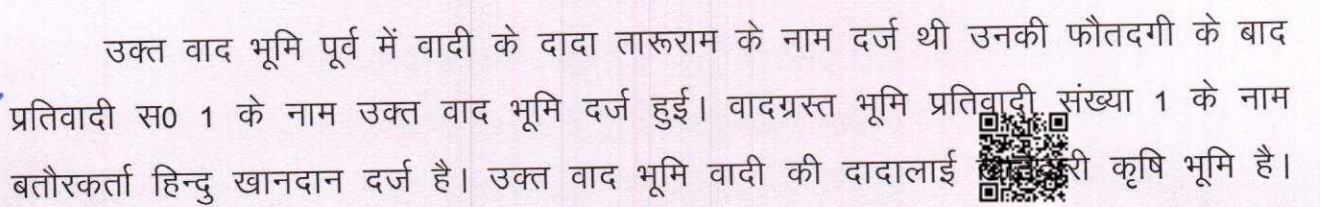 उक्त वाद भूमि पूर्व में वादी के दादा तारूराम के नाम दर्ज थी उनकी फौतदगी के बाद
प्रतिवादी स0 1 के नाम उक्त वाद भूमि दर्ज हुई। वादग्रस्त भूमि प्रतिवादी संख्या 1 के नाम
बतौरकर्ता हिन्दु खानदान दर्ज है। उक्त वाद भूमि वादी की दादालाई कृषि भूमि है।